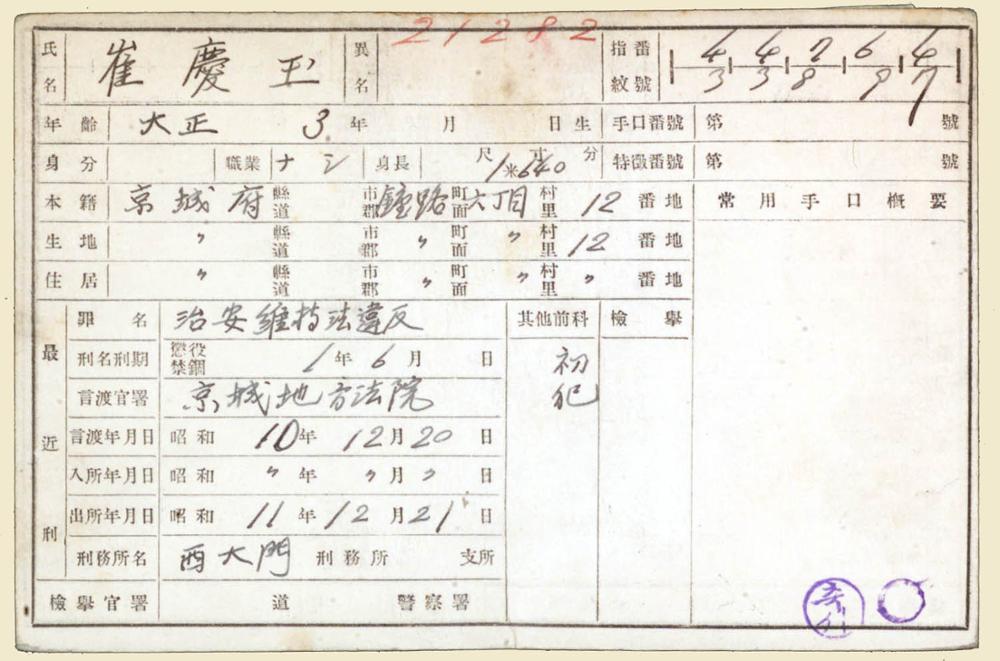 21282
氏名 崔慶玉 異名 指紋番號 4 4 7 6 4
3 3 8 9 7
年齡 大正 3 年 月 日生 手口番號 第 號
身分 職業 ナシ 身長 尺 寸 分 1米640 特徵番號 第 號
本籍 京城府 縣道 市郡 鐘路 町面 六丁目 村里 12 番地 常用手口概要
生地 〃 縣道 市郡 〃 町面 〃 村里 12 番地
住居 〃 縣道 市郡 〃 町面 〃 村里 〃 番地
最近刑
罪名 治安維持法違反 其他前科 檢擧
刑名刑期 懲役禁錮 1 年 6 月 日 初犯
言渡官署 京城地方法院
言渡年月日 昭和 10 年 12 月 20 日
入所年月日 昭和 〃 年 〃 月 〃 日
出所年月日 昭和 11 年 12 月 21 日
刑務所名 西大門 刑務所 支所
檢擧官署 道 警察署